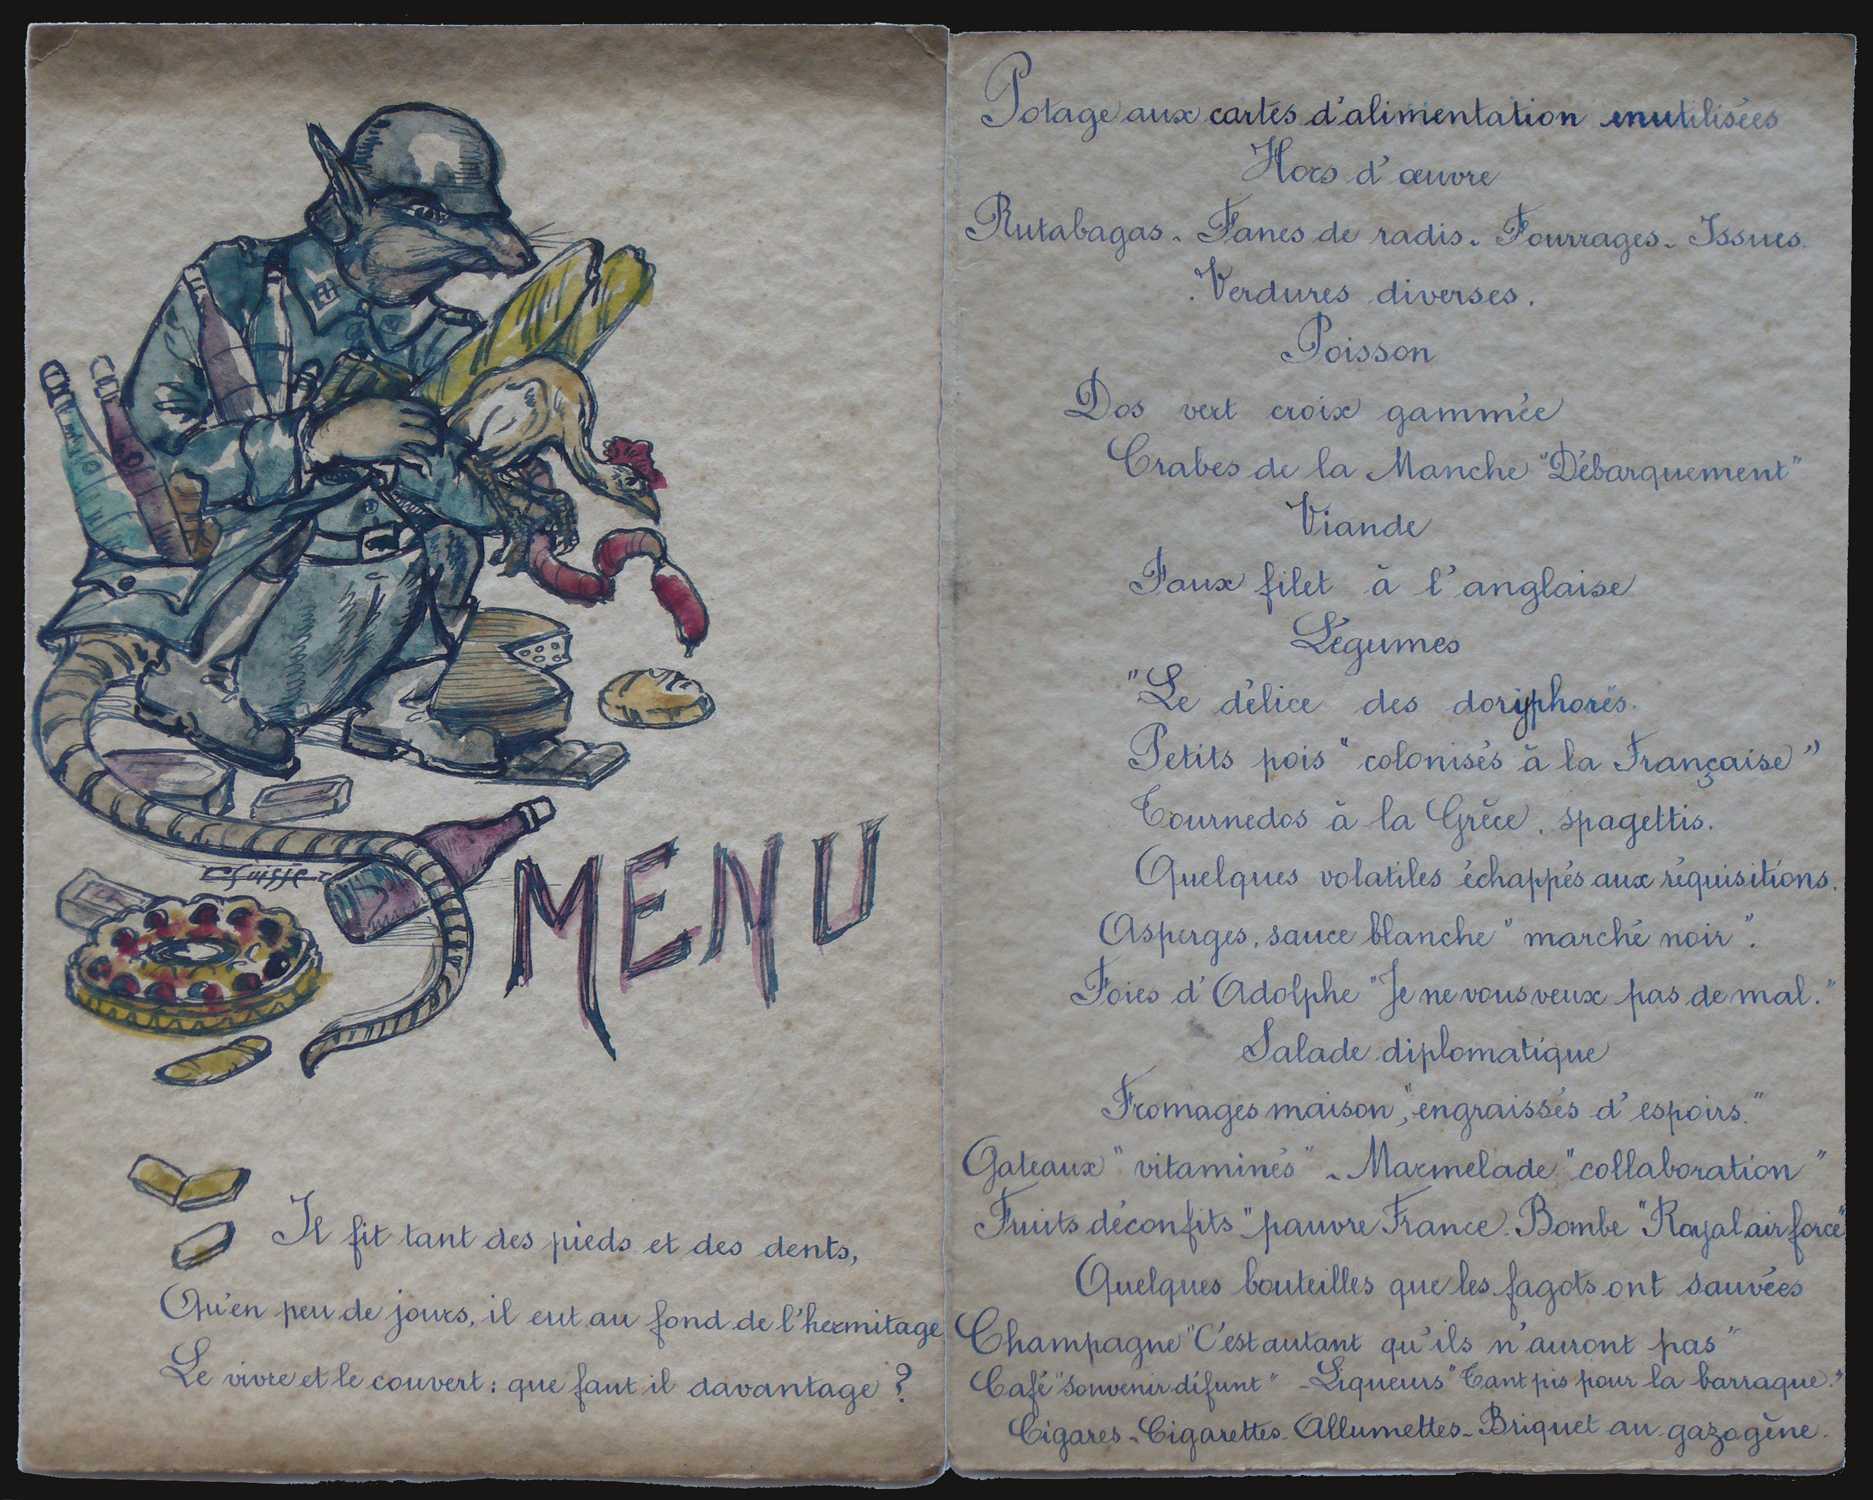 MENU
Il fit tant des pieds et des dents,
Qu'en peu de jours, il eut au fond de l'hermitage
Le vivre et le couvert : que faut il davantage ?
Potage aux cartes d'alimentation inutilisées
Hors d'œuvre
Rutabagas - Fanes de radis - Fourrages - Issues.
Verdures diverses.
Poisson
Dos vert croix gammée
Crabes de la Manche "Débarquement"
Viande
Faux filet à l'anglaise
Légumes
"Le délice des doryphores.
Petits pois "colonisés à la Française"
Tournedos à la Grèce, spagettis.
Quelques volatiles échappés aux réquisitions.
Asperges, sauce blanche "marché noir".
Foies d'Adolphe "Je ne vous veux pas de mal."
Salade diplomatique
Fromages maison, "engraissés d'espoirs."
Gateaux "vitaminés" - Marmelade "collaboration"
Fruits déconfits "pauvre France. Bombe "Royal air force"
Quelques bouteilles que les fagots ont sauvées
Champagne "C'est autant qu'ils n'auront pas"
Café "Souvenir défunt" - Liqueurs "Tant pis pour la barraque."
Cigares - Cigarettes - Allumettes - Briquet au gazogène.